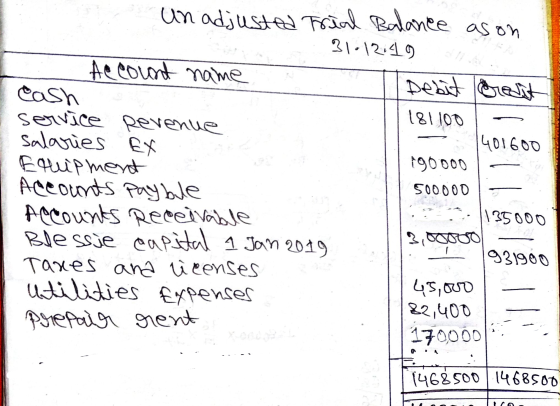 Unadjusted Trial Balance as on
31.12.19
Account name Debit Credit
Cash 181100 —
Service Revenue — 401600
Salaries Ex 190000 —
Equipment 500000 —
Accounts Payble 135000
Accounts Receivable 3,00000 —
Blessie capital 1 Jan 2019 — 931900
Taxes and licenses 45,000 —
Utilities Expenses 82,400 —
Prepair rent 170,000
1468500 1468500